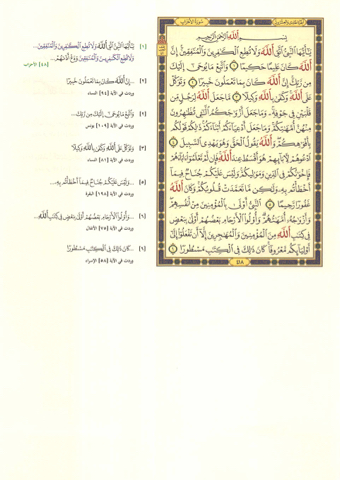 بِسْمِ اللَّهِ الرَّحْمَٰنِ الرَّحِيمِ
يَٰٓأَيُّهَا النَّبِيُّ اتَّقِ اللَّهَ وَلَا تُطِعِ الْكَٰفِرِينَ وَالْمُنَٰفِقِينَ إِنَّ
اللَّهَ كَانَ عَلِيمًا حَكِيمًا ١ وَاتَّبِعْ مَا يُوحَىٰٓ إِلَيْكَ
مِن رَّبِّكَ إِنَّ اللَّهَ كَانَ بِمَا تَعْمَلُونَ خَبِيرًا ٢ وَتَوَكَّلْ
عَلَى اللَّهِ وَكَفَىٰ بِاللَّهِ وَكِيلًا ٣ مَّا جَعَلَ اللَّهُ لِرَجُلٍ مِّن
قَلْبَيْنِ فِي جَوْفِهِ وَمَا جَعَلَ أَزْوَٰجَكُمُ الَّٰٓـِٔي تُظَٰهِرُونَ
مِنْهُنَّ أُمَّهَٰتِكُمْ وَمَا جَعَلَ أَدْعِيَآءَكُمْ أَبْنَآءَكُمْ ذَٰلِكُمْ قَوْلُكُم
بِأَفْوَٰهِكُمْ وَاللَّهُ يَقُولُ الْحَقَّ وَهُوَ يَهْدِي السَّبِيلَ ٤
ادْعُوهُمْ لِأٓبَآئِهِمْ هُوَ أَقْسَطُ عِندَ اللَّهِ فَإِن لَّمْ تَعْلَمُوٓا ءَابَآءَهُمْ
فَإِخْوَٰنُكُمْ فِي الدِّينِ وَمَوَٰلِيكُمْ وَلَيْسَ عَلَيْكُمْ جُنَاحٌ فِيمَآ
أَخْطَأْتُم بِهِ وَلَٰكِن مَّا تَعَمَّدَتْ قُلُوبُكُمْ وَكَانَ اللَّهُ
غَفُورًا رَّحِيمًا ٥ النَّبِيُّ أَوْلَىٰ بِالْمُؤْمِنِينَ مِنْ أَنفُسِهِمْ
وَأَزْوَٰجُهُٓ أُمَّهَٰتُهُمْ وَأُولُوا الْأَرْحَامِ بَعْضُهُمْ أَوْلَىٰ بِبَعْضٍ
فِي كِتَٰبِ اللَّهِ مِنَ الْمُؤْمِنِينَ وَالْمُهَٰجِرِينَ إِلَّآ أَن تَفْعَلُوٓا إِلَىٰٓ
أَوْلِيَآئِكُم مَّعْرُوفًا كَانَ ذَٰلِكَ فِي الْكِتَٰبِ مَسْطُورًا ٦
٤١٨
[١] يَٰٓأَيُّهَا النَّبِيُّ اتَّقِ اللَّهَ وَلَا تُطِعِ الْكَٰفِرِينَ وَالْمُنَٰفِقِينَ...
وَلَا تُطِعِ الْكَٰفِرِينَ وَالْمُنَٰفِقِينَ وَدَعْ أَذَىٰهُمْ...
[٤٨] الأحزاب
[٢] ...إِنَّ اللَّهَ كَانَ بِمَا تَعْمَلُونَ خَبِيرًا
وردت في الآية [٩٤] النساء
[٢] وَاتَّبِعْ مَا يُوحَىٰٓ إِلَيْكَ مِن رَّبِّكَ...
وردت في الآية [١٠٩] يونس
[٣] وَتَوَكَّلْ عَلَى اللَّهِ وَكَفَىٰ بِاللَّهِ وَكِيلًا
وردت في الآية [٨١] النساء
[٥] ...وَلَيْسَ عَلَيْكُمْ جُنَاحٌ فِيمَآ أَخْطَأْتُم بِهِ...
وردت في الآية [١٩٨] البقرة
[٦] ...وَأُولُوا الْأَرْحَامِ بَعْضُهُمْ أَوْلَىٰ بِبَعْضٍ فِي كِتَٰبِ اللَّهِ...
وردت في الآية [٧٥] الأنفال
[٦] ...كَانَ ذَٰلِكَ فِي الْكِتَٰبِ مَسْطُورًا
وردت في الآية [٥٨] الإسراء